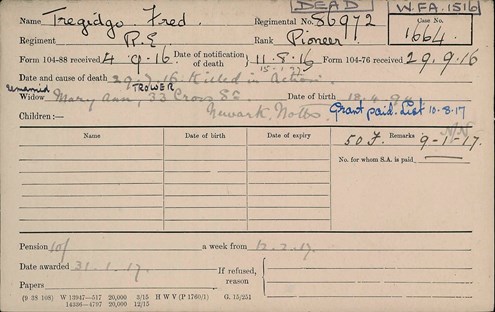 DEAD W.FA.1516
Name Tregidgo Fred. Regimental No. 86972 Case No. 1664.
Regiment R.E Rank Pioneer
Form 104-88 received 4.9.16 Date of notification of death 11.8.16 Form 104-76 received 29.9.16
Date and cause of death 29.7.16 Killed in Action.
remarried TROWER
Widow Mary Ann, 33 Cross St Date of birth 18.4.94
Newark, Notts. Grant paid. List 10-8-17
Children:—
Name Date of birth Date of expiry 50 F. Remarks 9-1-17.
No. for whom S.A. is paid
Pension 10/ a week from 12.2.17.
Date awarded 31.1.17. If refused, reason
Papers
(9 38 108) W 13947—517 20,000 3/15 H W V (P 1760/1) G. 15/251
14336—4797 20,000 12/15